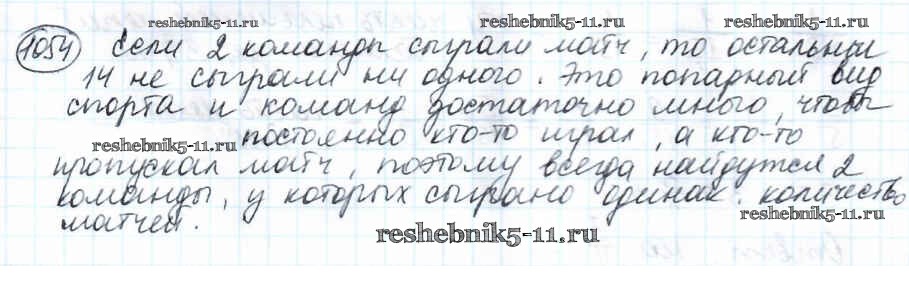 reshebnik5-11.ru
reshebnik5-11.ru
1054 Если 2 команды сыграли матч, то остальные
14 не сыграли ни одного. Это попарный вид
спорта и команд достаточно много, чтобы
reshebnik5-11.ru постоянно кто-то играл, а кто-то
пропускал матч, поэтому всегда найдутся 2
команды, у которых сыграно одинак. количество
reshebnik5-11.ru
матчей.
reshebnik5-11.ru